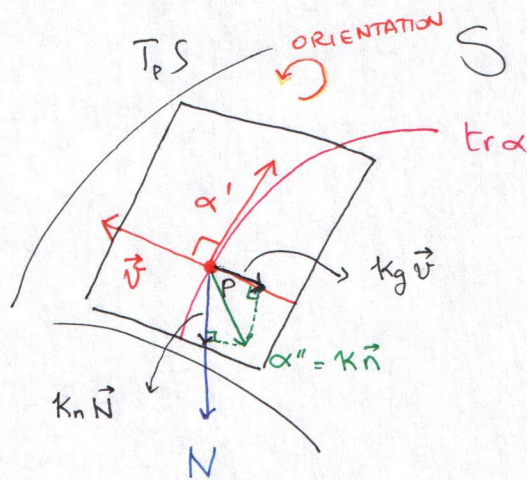 ORIENTATION
TpS
S
tr α
α'
v⃗
P
kg v⃗
α'' = k n⃗
kn N⃗
N